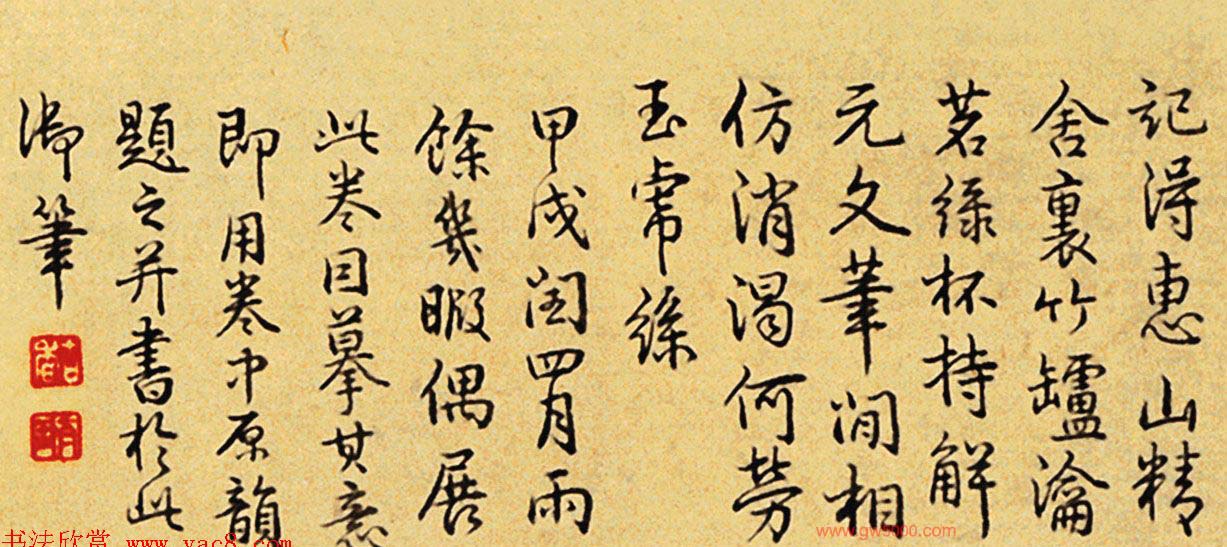 記得惠山精
舍裏竹罏瀹
茗綠杯持解
元文筆閒相
仿消渴何勞
玉常絲
甲戌閏四月雨
餘幾暇偶展
此卷因摹其意
即用卷中原韻
題之并書於此
御筆
书法欣赏 www.yac8.com
www.gw5000.com